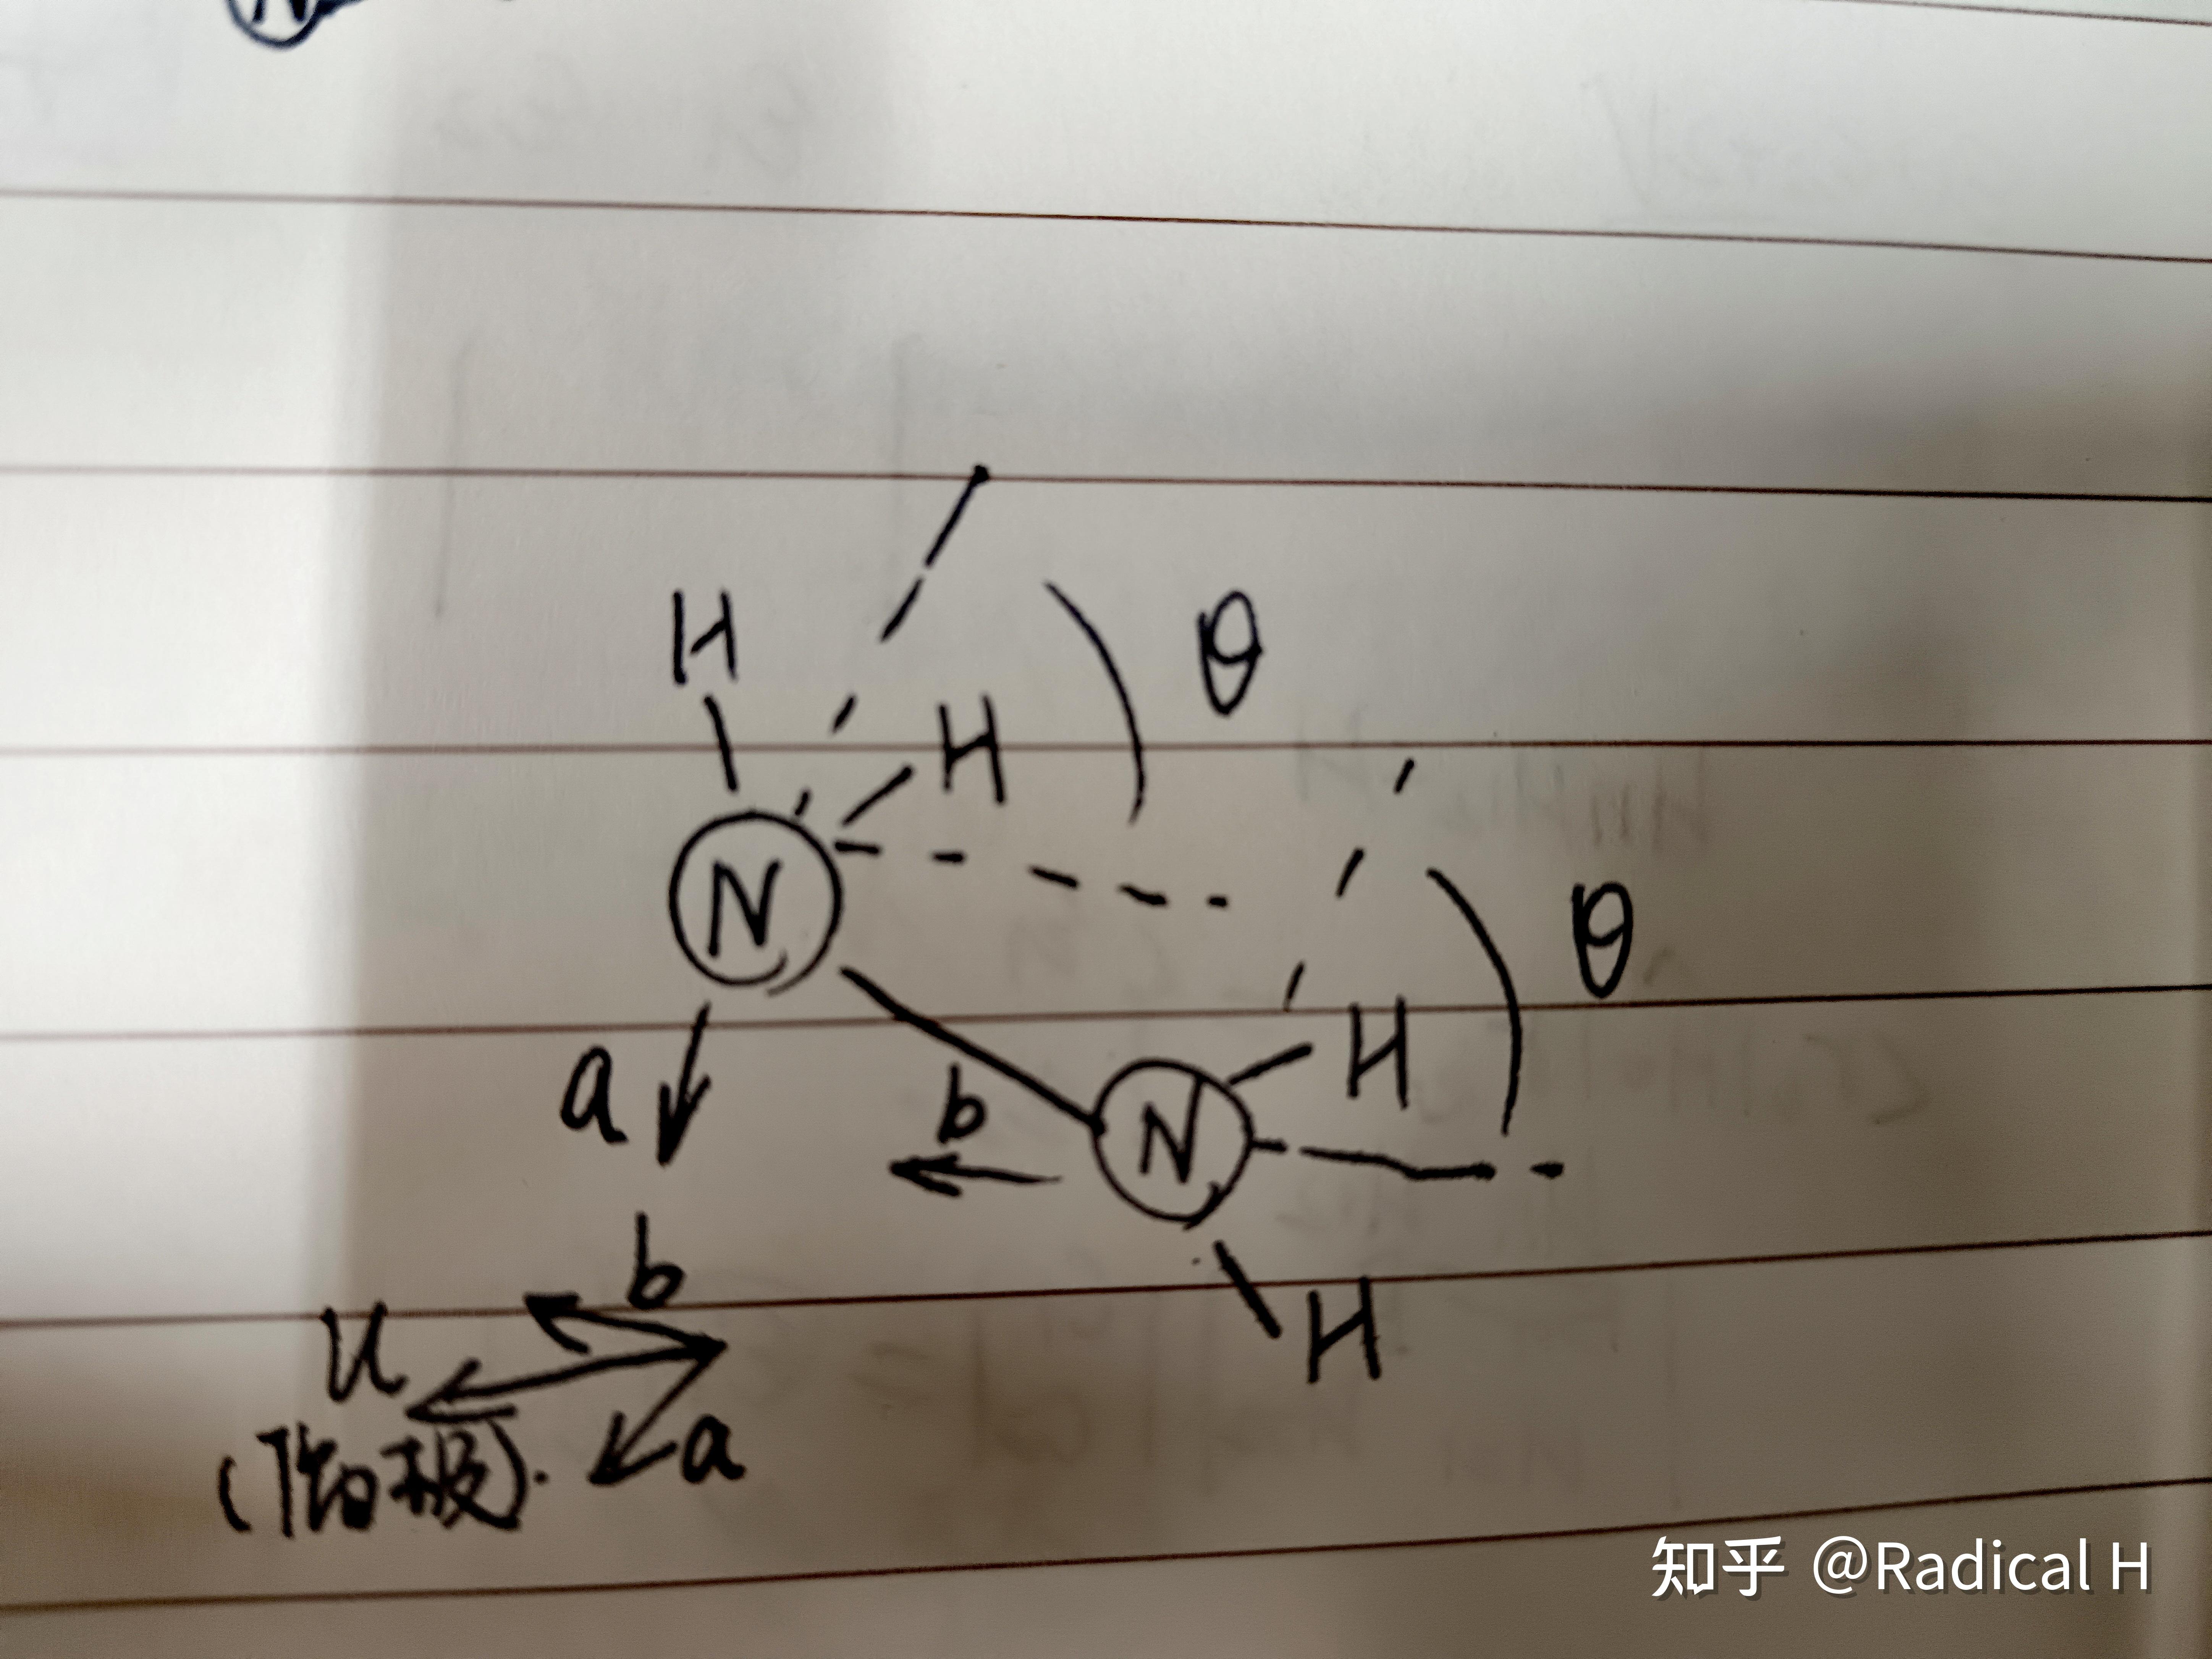 N
H
θ
H
N
θ
H
a
b
N
b
H
u
a
(偶极).
知乎 @Radical H